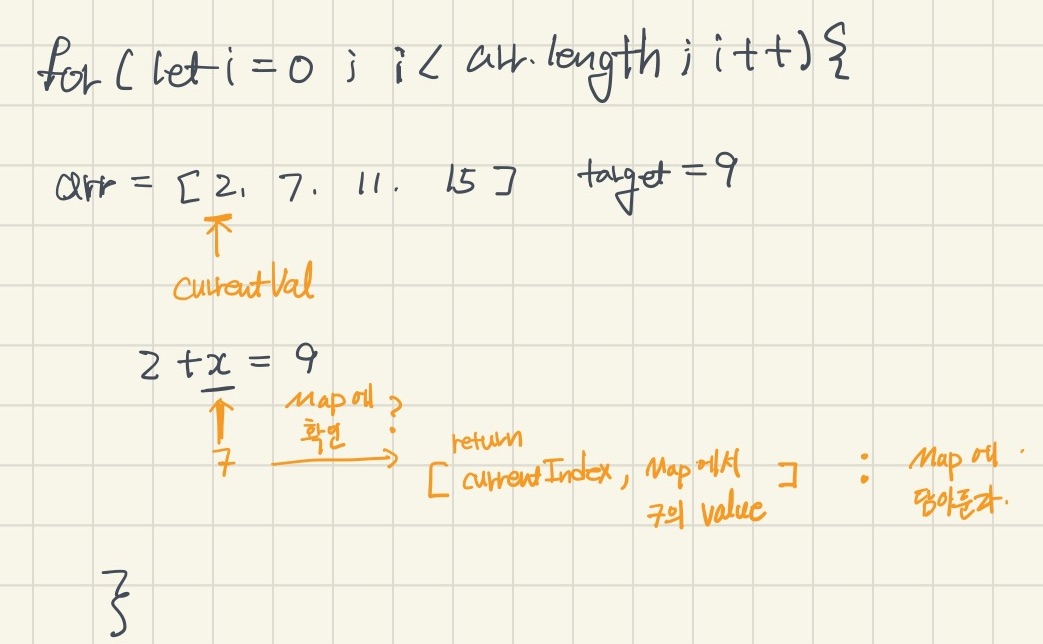 for ( let i = 0 ; i < arr.length ; i++) {
arr = [ 2. 7. 11. 15 ] target = 9
currentVal
2 + x = 9
7
Map에
확인 ?
return
[ currentIndex, Map에서
7의 value ] : Map에
담아둔다.
}